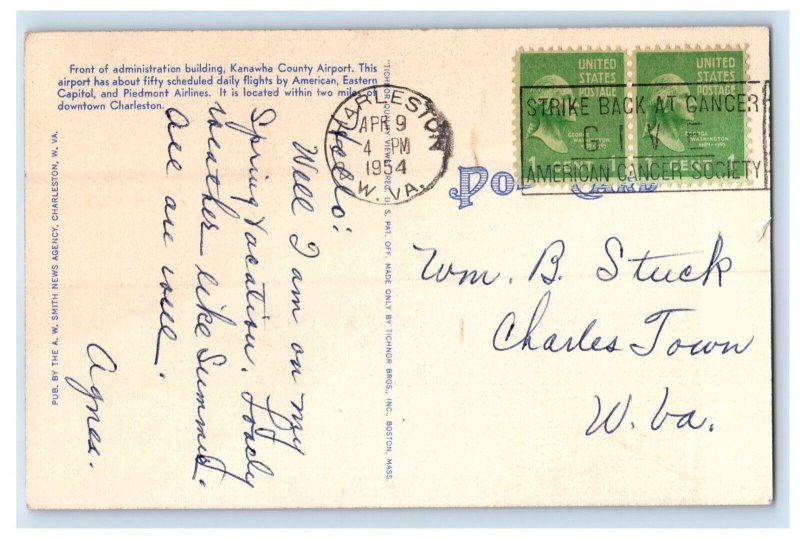 Front of administration building, Kanawha County Airport. This
airport has about fifty scheduled daily flights by American, Eastern
Capitol, and Piedmont Airlines. It is located within two miles of
downtown Charleston.
CHARLESTON
APR 9
4 PM
1954
W. VA.
UNITED
STATES
POSTAGE
GEORGE
WASHINGTON
1 CENT 1
UNITED
STATES
POSTAGE
GEORGE
WASHINGTON
1789-1795
1 CENT 1
STRIKE BACK AT CANCER
GIVE
AMERICAN CANCER SOCIETY
POST CARD
Hello!
Well I am on my
Spring Vacation. Lovely
weather - like Summer.
All are well.
Agnes.
Wm. B. Stuck
Charles Town
W. Va.
PUB. BY THE A. W. SMITH NEWS AGENCY, CHARLESTON, W. VA.
"TICHNOR QUALITY VIEWS," REG. U. S. PAT. OFF. MADE ONLY BY TICHNOR BROS., INC., BOSTON, MASS.